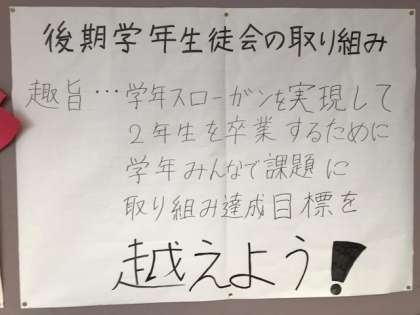 後期学年生徒会の取り組み
趣旨…学年スローガンを実現して
2年生を卒業するために
学年みんなで課題に
取り組み達成目標を
越えよう!